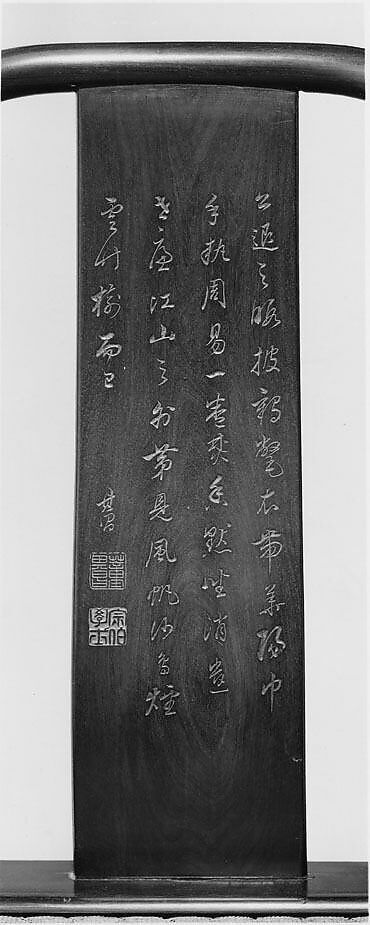 公退之暇披鶴氅衣帶華陽巾
手執周易一卷焚香默坐消遣
世慮江山之外第見風帆沙鳥煙
雲竹樹而已
其昌
董其昌
宗伯學士